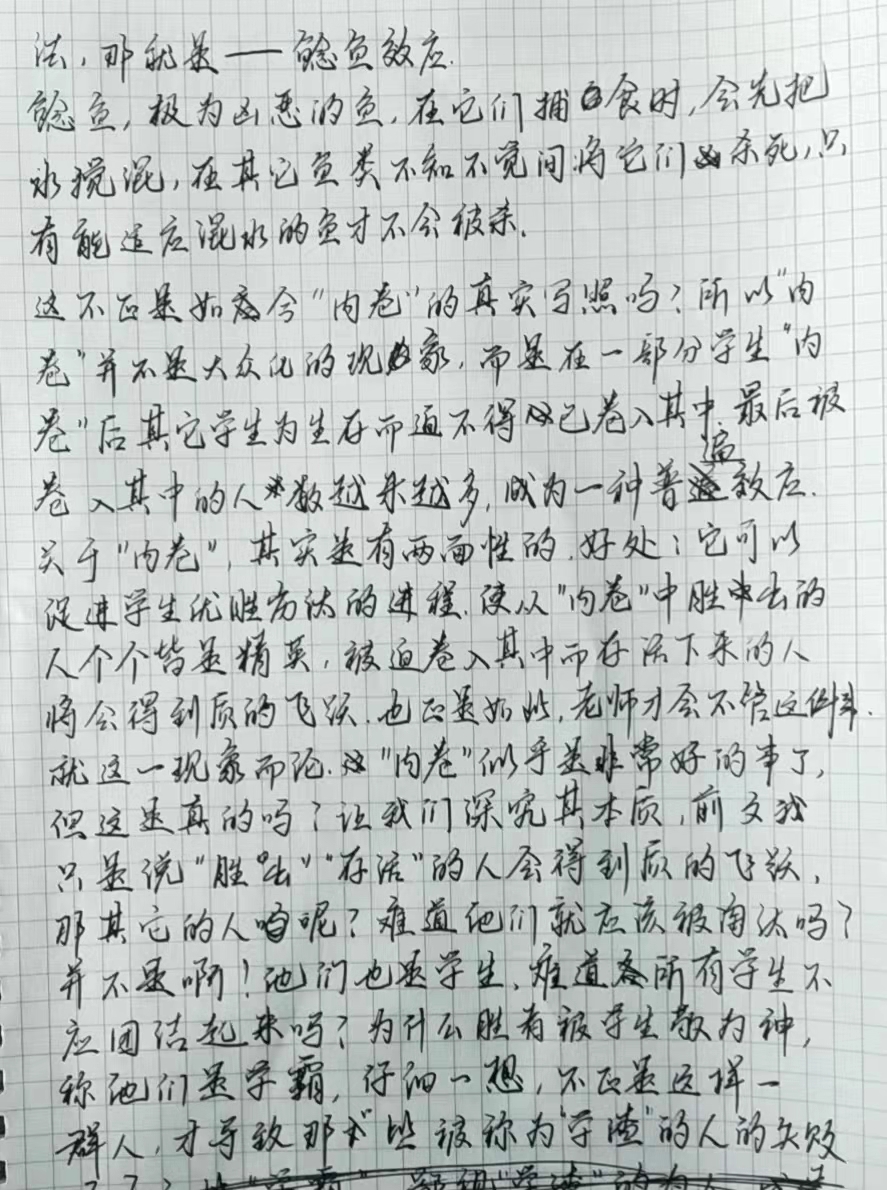 法,那就是——鲶鱼效应.
鲶鱼,极为凶恶的鱼,在它们捕食时,会先把
水搅混,在其它鱼类不知不觉间将它们杀死,只
有能适应混水的鱼才不会被杀.
这不正是如今“内卷”的真实写照吗?所以“内
卷”并不是大众化的现象,而是在一部分学生“内
卷”后其它学生为生存而迫不得已卷入其中.最后被
卷入其中的人数越来越多,成为一种普遍效应.
关于“内卷”,其实是有两面性的.好处:它可以
促进学生优胜劣汰的进程.使从“内卷”中胜出的
人个个皆是精英,被迫卷入其中而存活下来的人
将会得到质的飞跃.也正是如此,老师才会不管这件事.
就这一现象而论.“内卷”似乎是非常好的事了,
但这是真的吗?让我们深究其本质,前文我
只是说“胜出”“存活”的人会得到质的飞跃,
那其它的人呢?难道他们就应该被淘汰吗?
并不是啊!他们也是学生,难道所有学生不
应团结起来吗?为什么胜者被学生敬为神,
称他们是学霸,仔细一想,不正是这样一
群人,才导致那些被称为“学渣”的人的失败